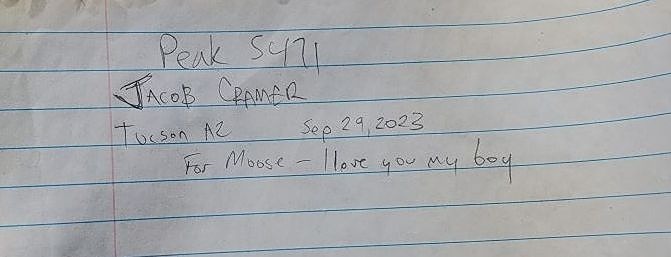 Peak 5471
JACOB CRAMER
Tucson AZ Sep 29, 2023
For Moose - I love you my boy